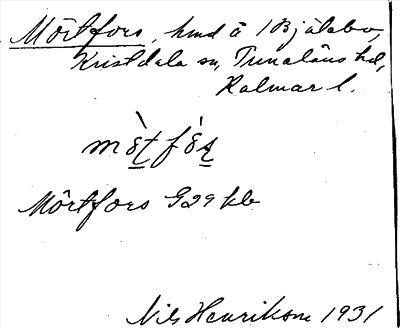 Mörtfors, hmd å 1 Bjälebo,
Kristdala sn, Tunaläns hd,
Kalmar l.
mö̀tfós
Mörtfors G29 kb
Nils Henrikson 1931